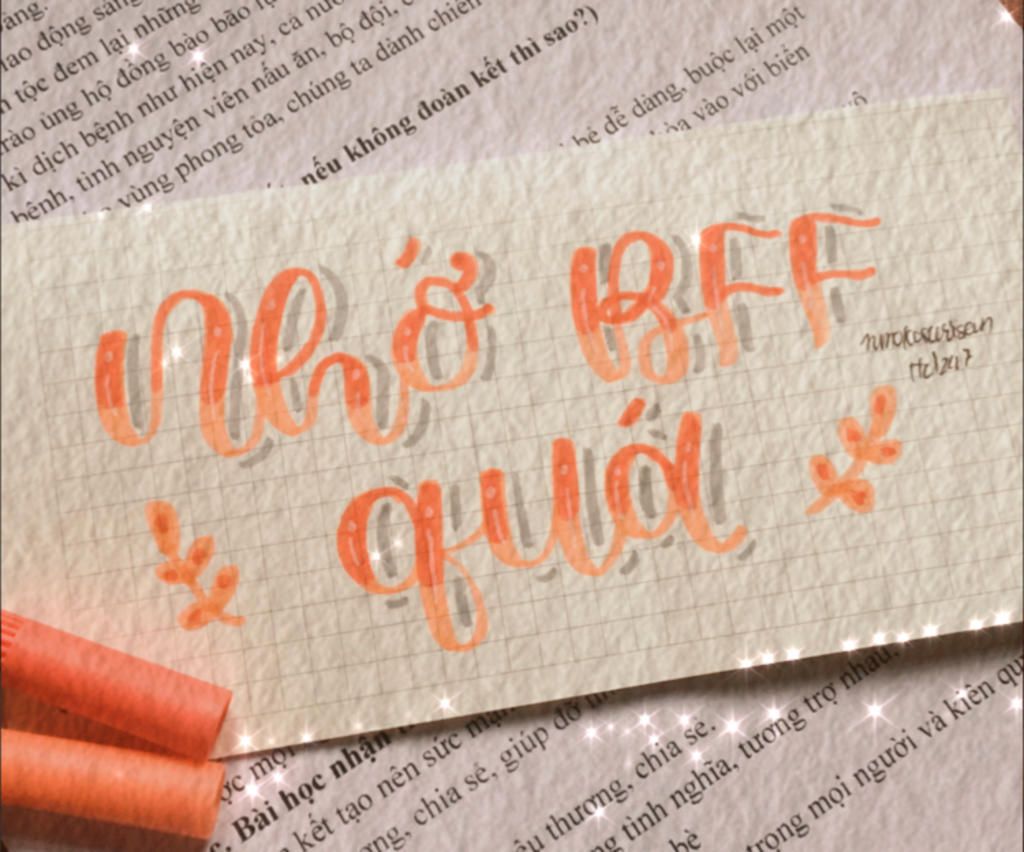 lao động sáng
n tộc đem lại những
rào ủng hộ đồng bào bão
kì dịch bệnh như hiện nay, cả nước
bệnh, tình nguyện viên nấu ăn, bộ đội,
vùng phong tỏa, chúng ta dành chiến
nếu không đoàn kết thì sao?)
bé dễ dàng, buộc lại một
hòa vào với biển
Nhớ BFF
quá
ợc mọi
c. Bài học nhận
kết tạo nên sức mạnh
ơng, chia sẻ, giúp đỡ
êu thương, chia sẻ.
ng tình nghĩa, tương trợ nhau.
bè
trọng mọi người và kiên qu